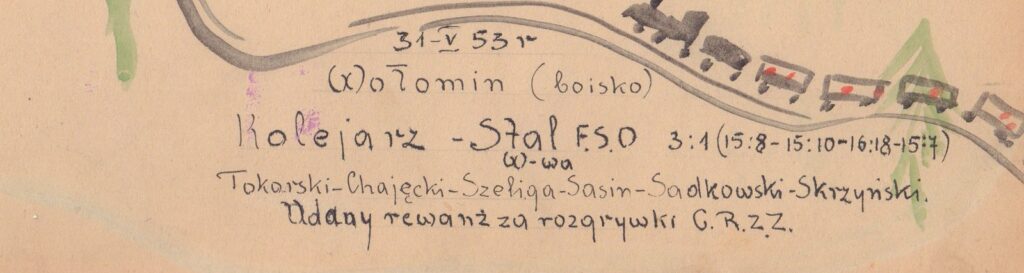 31-V 53 r
Wołomin (boisko)
Kolejarz - Stal F.S.O 3:1 (15:8-15:10-16:18-15:7)
W-wa
Tokarski-Chajęcki-Szeliga-Sasin-Sadkowski-Skrzyński.
Udany rewanż za rozgrywki C.R.Z.Z.